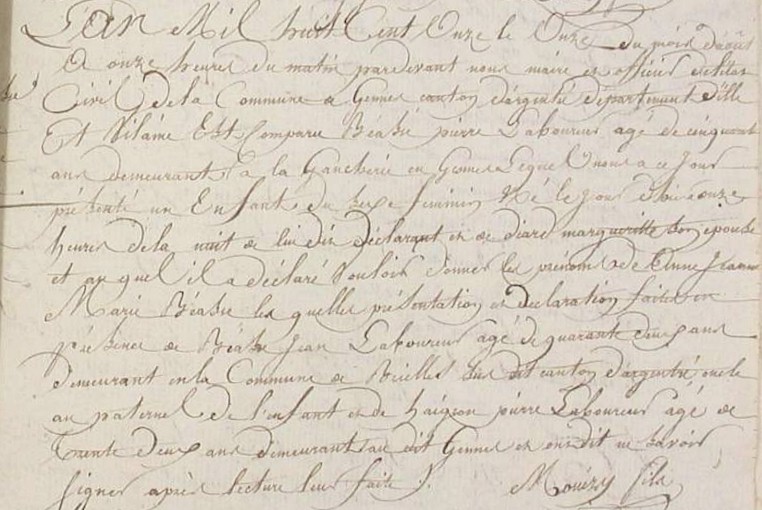 L'an Mil huit Cent Onze le Onze du mois d'aôut
a onze heures du matin pardevant nous maire et officier de l'état
Civil de la Commune de Gennes canton d'argentré département d'ille
Et Vilaine Est Comparu pierre Laboureur agé de cinquante
ans demeurant a la en Gennes Lequel nous a ce Jour
présenté un Enfant du sexe feminin Né le Jour d'hier onze
heures de la nuit de lui dit déclarant et de diard margueritte son epouse
et au quel il a déclaré vouloir donner les prénoms de Anne Jeanne
Marie les quelles présentation et declaration faites en
présence de Jean Laboureur agé de quarante deux ans
demeurant en la Commune de Brielles sus dit canton d'argentré oncle
au paternel de l'enfant et de haigron pierre Laboureur agé de
trente deux ans demeurant au dit Gennes et ont dit ne savoir
signer après lecture leur faite
Mouëzy fils